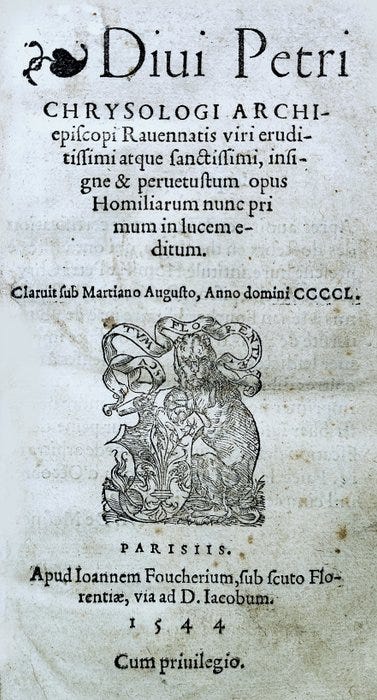 Diui Petri
CHRYSOLOGI ARCHI-
episcopi Rauennatis viri erudi-
tissimi atque sanctissimi, insi-
gne & peruetustum opus
Homiliarum nunc pri
mum in lucem e-
ditum.
Claruit sub Martiano Augusto, Anno domini CCCCL.
SCV TVM FLO RENTIÆ
PARISIIS.
Apud Ioannem Foucherium, sub scuto Flo-
rentiæ, via ad D. Iacobum.
1544
Cum priuilegio.